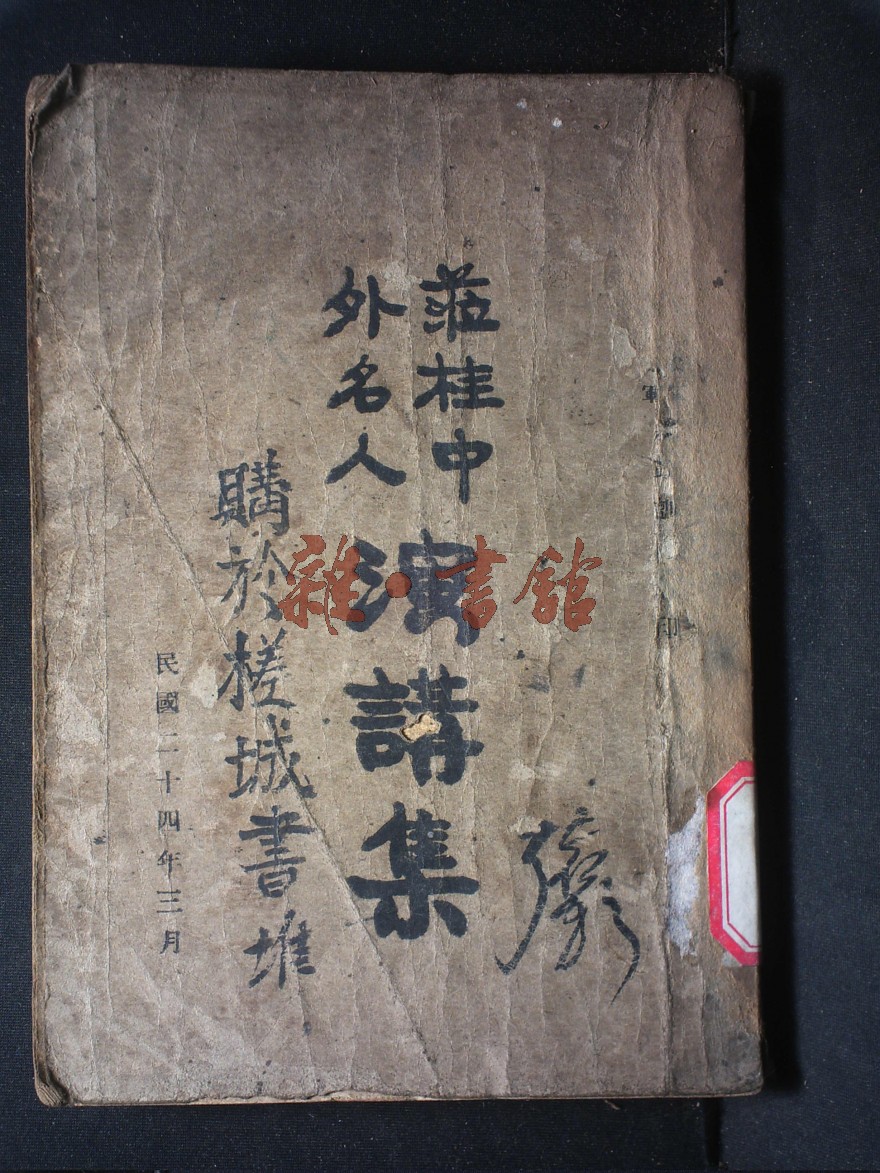 莅桂中
外名人
演講集
購於槎城書堆
民國二十四年三月
雜·書館
印